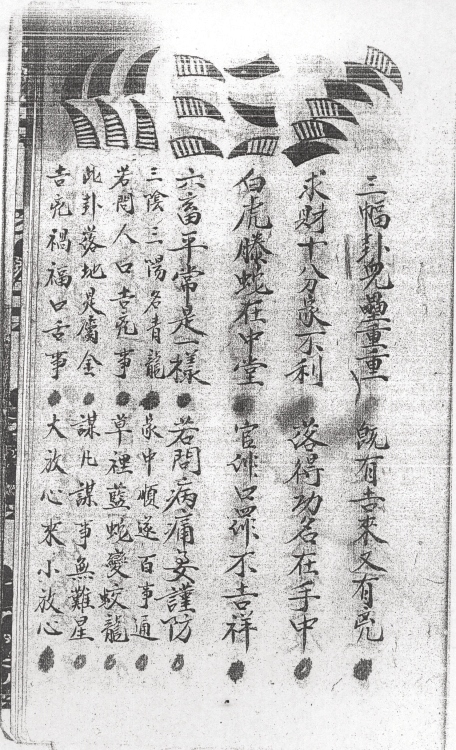 三幅卦兒疊重重 既有吉來又有兇
求財十分象不利 落得功名在手中
伯虎滕蛇在中堂 官非口舌不吉祥
六畜平常是一樣 若問病痛要謹防
三陰三陽名青龍 象中順遂百事通
若問人口吉兇事 草裡藍蛇變蛟龍
此卦落地是屬金 謀凡謀事無難星
吉兇禍福口舌事 大放心來小放心